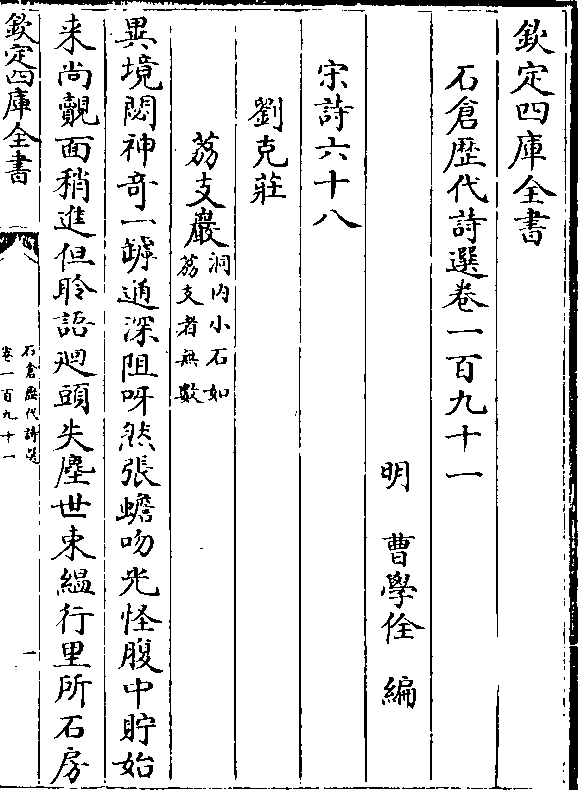 欽定四庫全書
石倉歴代詩選卷一百九十一
明 曹學佺 編
宋詩六十八
劉克莊
荔支巖洞内小石如荔支者無數
異境閟神奇一罅通深阻呀然張蟾吻光怪腹中貯始
来尚覿面稍進但聆語廽頭失塵世束緼行里所石房
欽定四庫全書
石倉歴代詩選
卷一百九十一
一